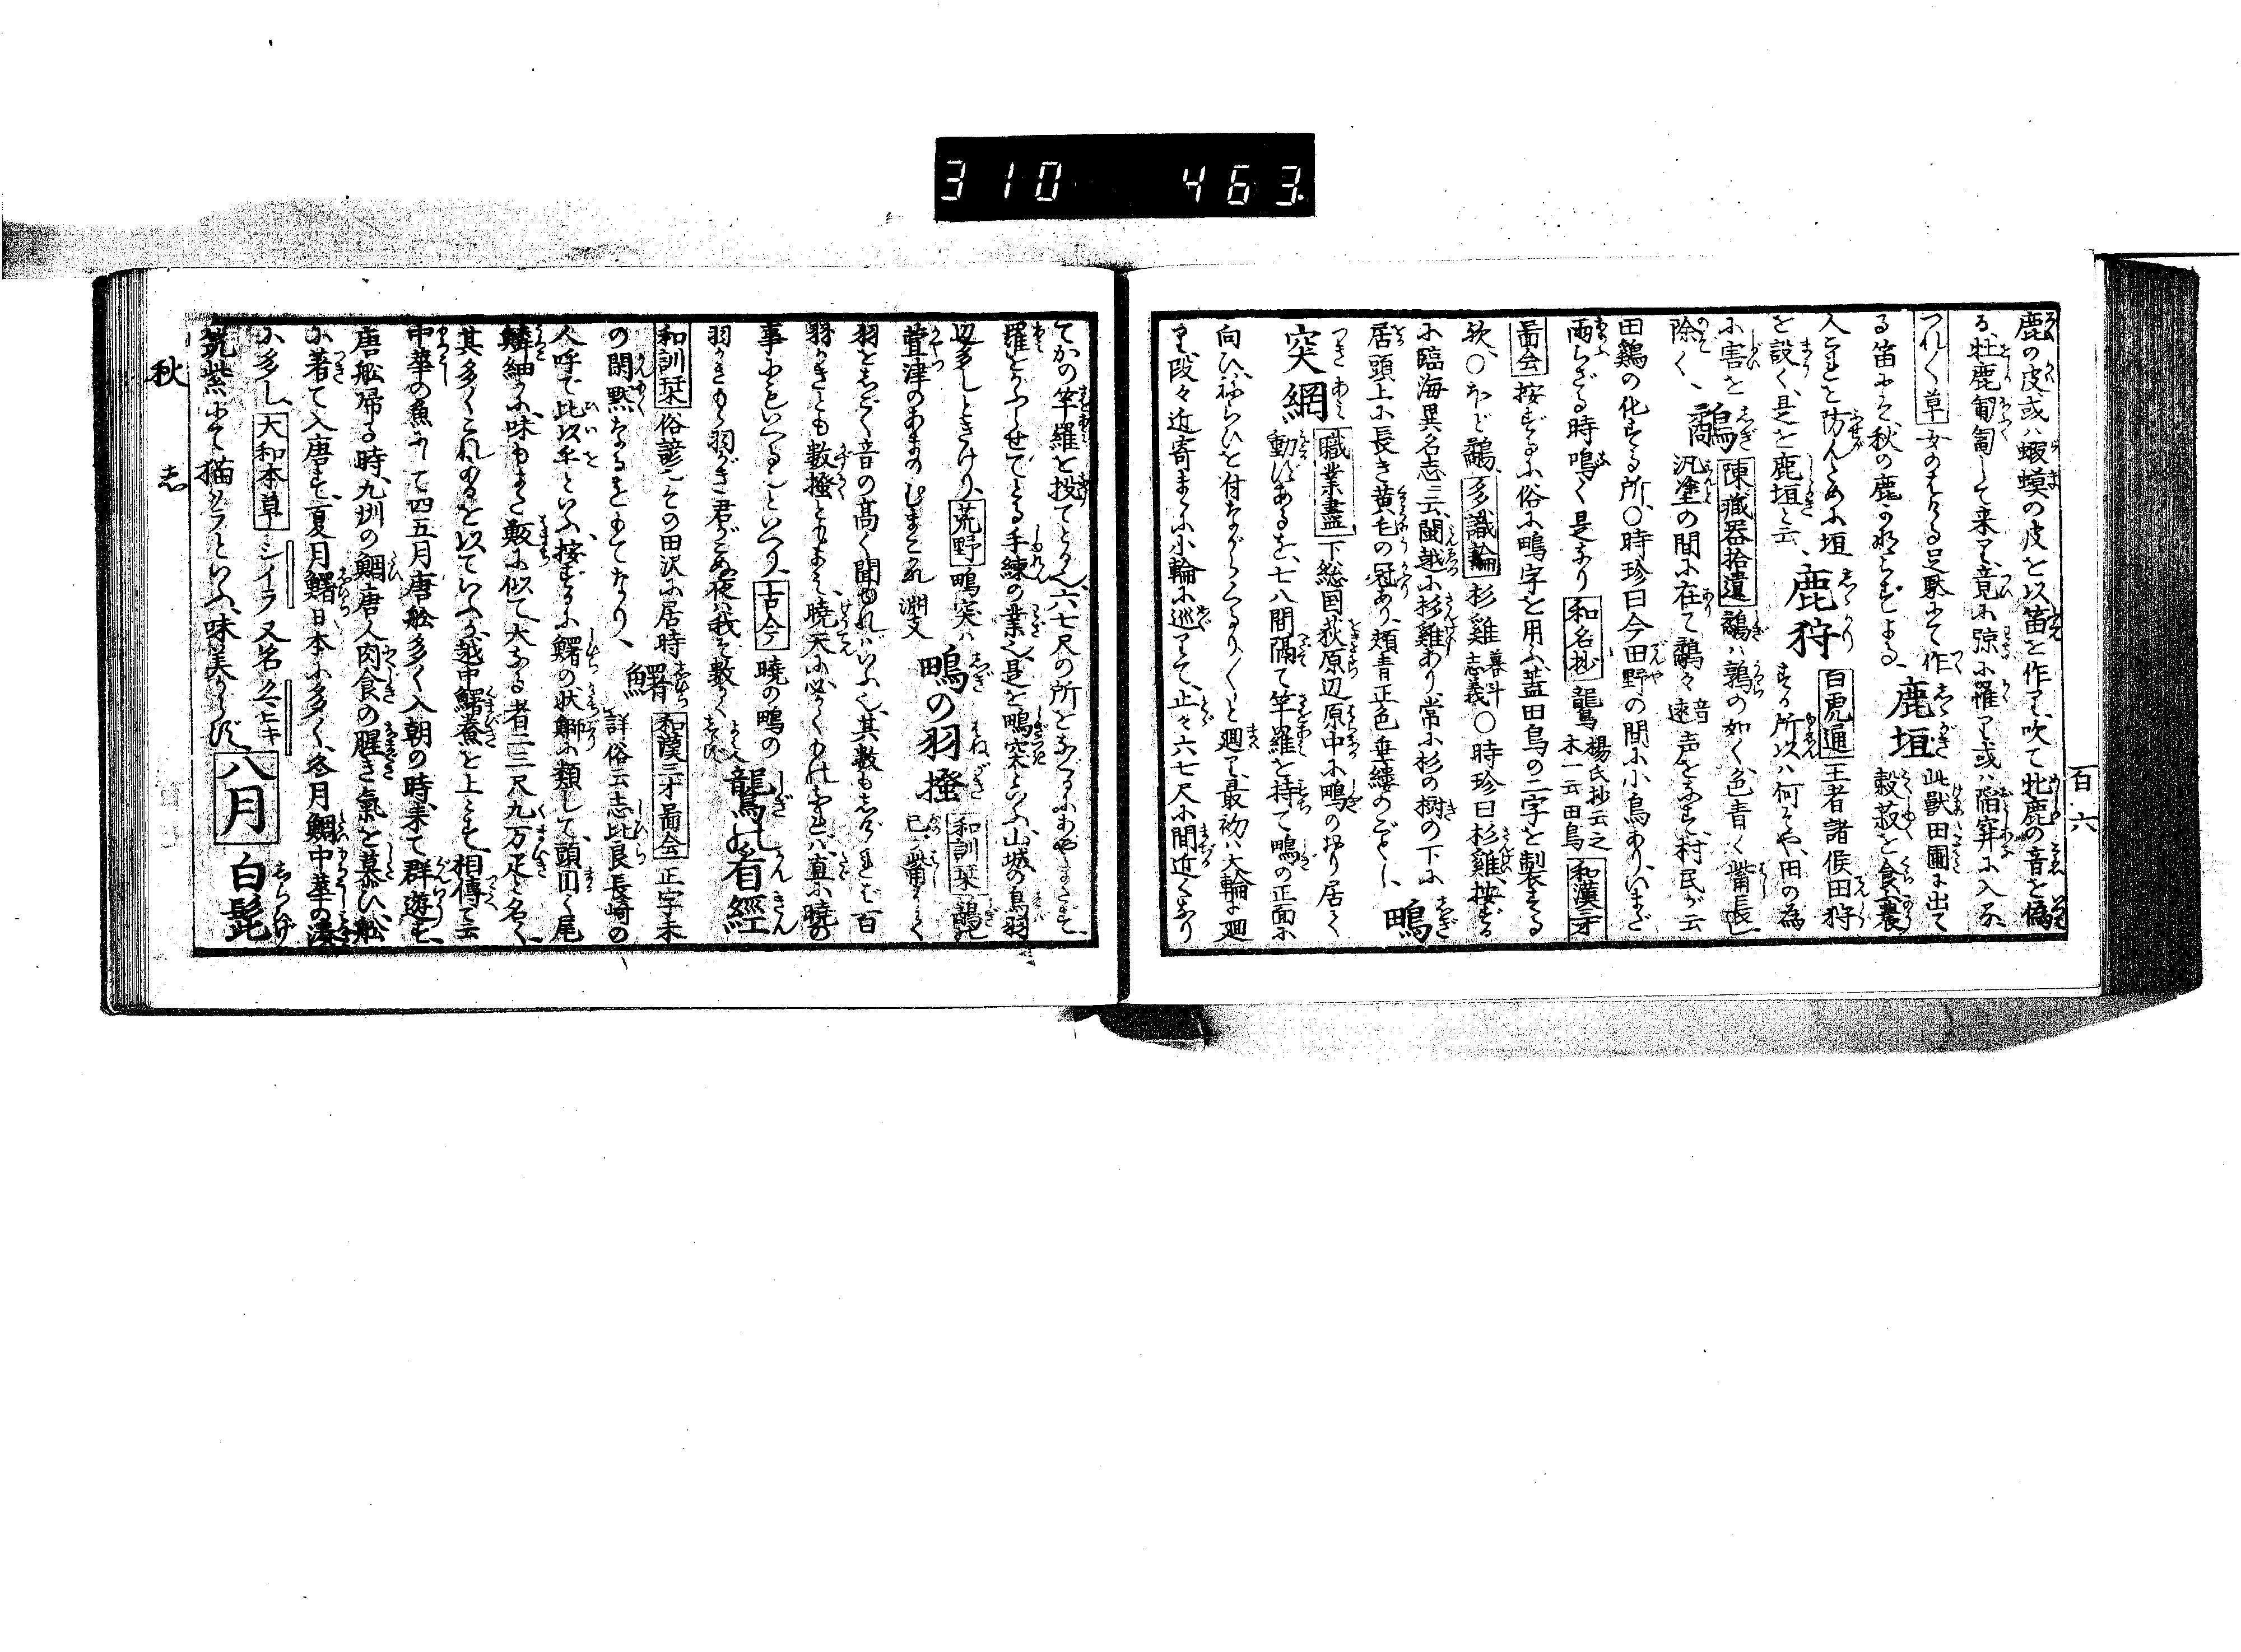 310 463
百六
鹿の皮或ハ蝦蟆の皮を以笛を作り、吹て牝鹿の音を偽
る、牡鹿匍匐して来り、竟に弶に罹り或ハ陥穽に入る、
つれ〱草 女のはける足駄にて作
る笛にハ、秋の鹿かならずよる、 鹿垣 此獣田圃に出て穀菽を食、農
人これを防んために垣
を設く、是を鹿垣と云、 鹿狩 白虎通 王者諸侯田狩する所以ハ何ぞや、田の為
に害を
除く、 鷸 陳藏器拾遺 鷸ハ鶉の如く、色青く、觜長し、汎塗の間に在て鷸々 音速 声をなす、村民が云
田鷄の化する所、○時珍曰今田野の間に小鳥あり、いまだ
雨らざる時鳴く是なり 和名抄 鷖 楊氏抄云之木一云田鳥 和漢三才
圖会 按ずるに俗に鴫字を用ふ、蓋田鳥の二字を製する
歟、○ほど鷸、多識論 杉雞 暮斗志義 ○時珍曰杉雞、按ずる
に臨海異名志云、閩越に杉雞あり、常に杉の樹の下に
居頭上に長き黄毛の冠あり、頬青正色垂縷のごとし、 鴫
突網 職業盡 下総国荻原辺原中に鴫の
動ずあるを、七八間隔て竿羅を持て鴫の正面に
向ひ、ねらひを付ながら、くるり〱と廻り、最初ハ大輪に廻
り、段々近寄まゝに小輪に巡りて、正々六七尺に間近くなり
てかの竿羅を投てとる、六七尺の所をなぐるにあやまたず、
羅をかふせてとる手練の業也、是を鴫突といふ、山城の鳥羽
辺多しときけり、荒野 鴫突ハ
萱津のあまのむまご哉 渕支 鴫の羽掻 和訓栞 鷸
羽をしごく音の高く聞ゆれバいふ也、其数も百
羽がきとも数掻ともよみ、暁天に必かくものなれバ、直に暁の
事にもいへるといへり、古今 暁の鴫の
羽がきもゝ羽がき君がこぬ夜ハ我ぞ数かく 鷖の看經
和訓栞 俗諺にその田沢に居時
の閑黙なるをもてなり、 鱰 和漢三才圖会 正字未詳俗云志比良長崎の
人呼で比以乎といふ、按ずるに鱰の状鰤に類して、頭円く尾
鱗細に、味もまた鰤に似て大なる者二三尺九万疋と名く、
其多くこれあるを以ていふか、越中鱰煮を上とす、相傳て云
中華の魚にて四五月唐舩多く入朝の時、来て群遊す、
唐舩帰る時、九州の鯛唐人肉食の腥き氣を慕ひ、舩
に著て入唐す、夏月鱰日本に多く、冬月鯛中華の湊
に多し、大和本草 シイラ又名クマビキ
筑紫にて猫ヅラといふ、味美ならず、 八月 白髭
秋 志